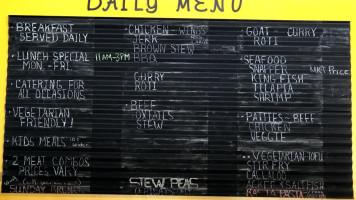 DAILY MENU
BREAKFAST
SERVED DAILY
LUNCH SPECIAL 11AM-3PM
MON.-FRI.
CATERING FOR
ALL OCCASIONS
VEGETARIAN
FRIENDLY!
KIDS MEALS
2 MEAT COMBOS
PRICES VARY
SUNDAY
CHICKEN-WINGS
JERK
BROWN STEW
BBQ
CURRY
ROTI
BEEF
OXTAILS
STEW
STEW PEAS
GOAT CURRY
ROTI
SEAFOOD
SNAPPER MKT PRICE
KINGFISH
TILAPIA
SHRIMP
PATTIES-BEEF
CHICKEN
VEGGIE
VEGETARIAN TOFU
STIR FRY
CALLALOO
RASTA PASTA